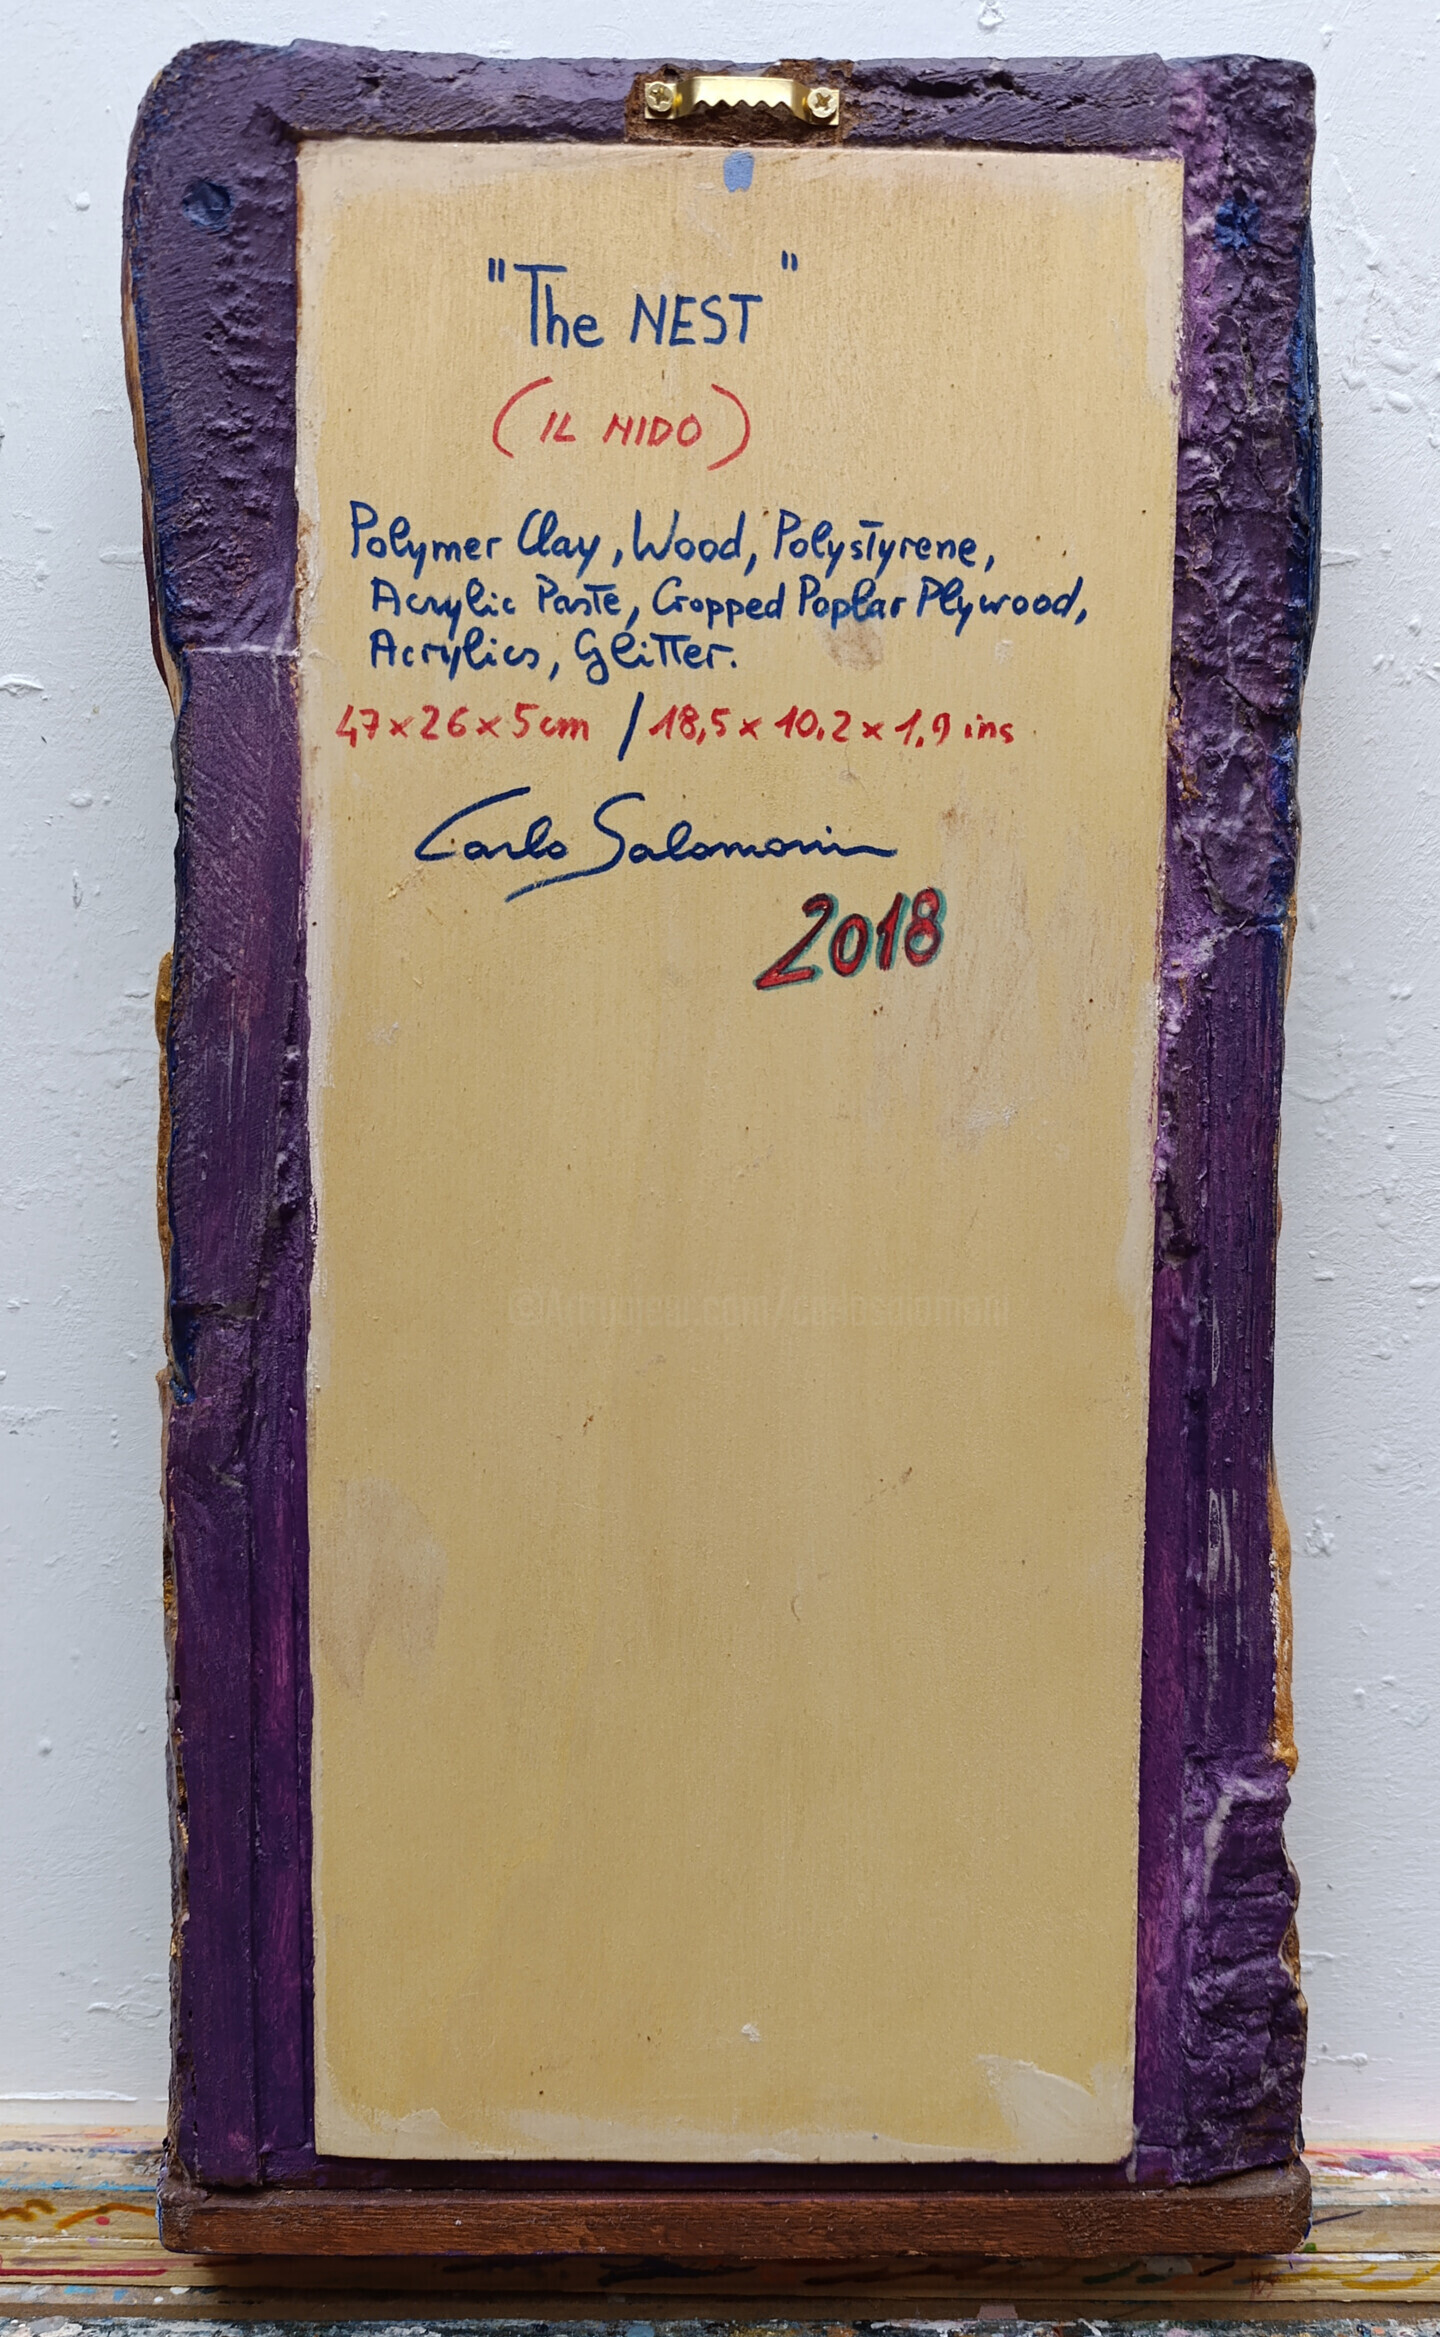 "The NEST"
(IL NIDO)
Polymer Clay, Wood, Polystyrene,
Acrylic Paste, Cropped Poplar Plywood,
Acrylics, Glitter.
47x26x5cm / 18,5x10,2x1,9 ins
Carlo Salomoni
2018